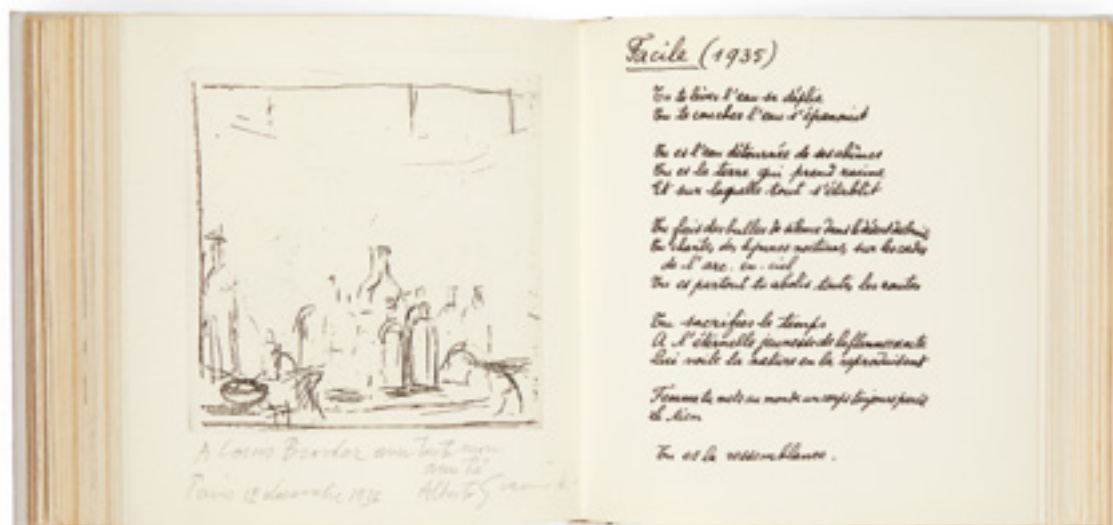 A Louis Broder avec toute mon
amitié
Paris 12 décembre
Alberto
Facile (1935)
Tu te lèves l'eau se déplie
Tu te couches l'eau s'épanouit
Tu es l'eau détournée de ses abîmes
Tu es la terre qui prend racine
Et sur laquelle tout s'établit
Tu fais des bulles de silence dans le désert des bruits
Tu chantes des hymnes nocturnes sur les cordes
de l'arc-en-ciel
Tu es partout tu abolis toutes les routes
Tu sacrifies le temps
A l'éternelle jeunesse de la flamme exacte
Qui voile la nature en la reproduisant
Femme tu mets au monde un corps toujours pareil
Le tien
Tu es la ressemblance.